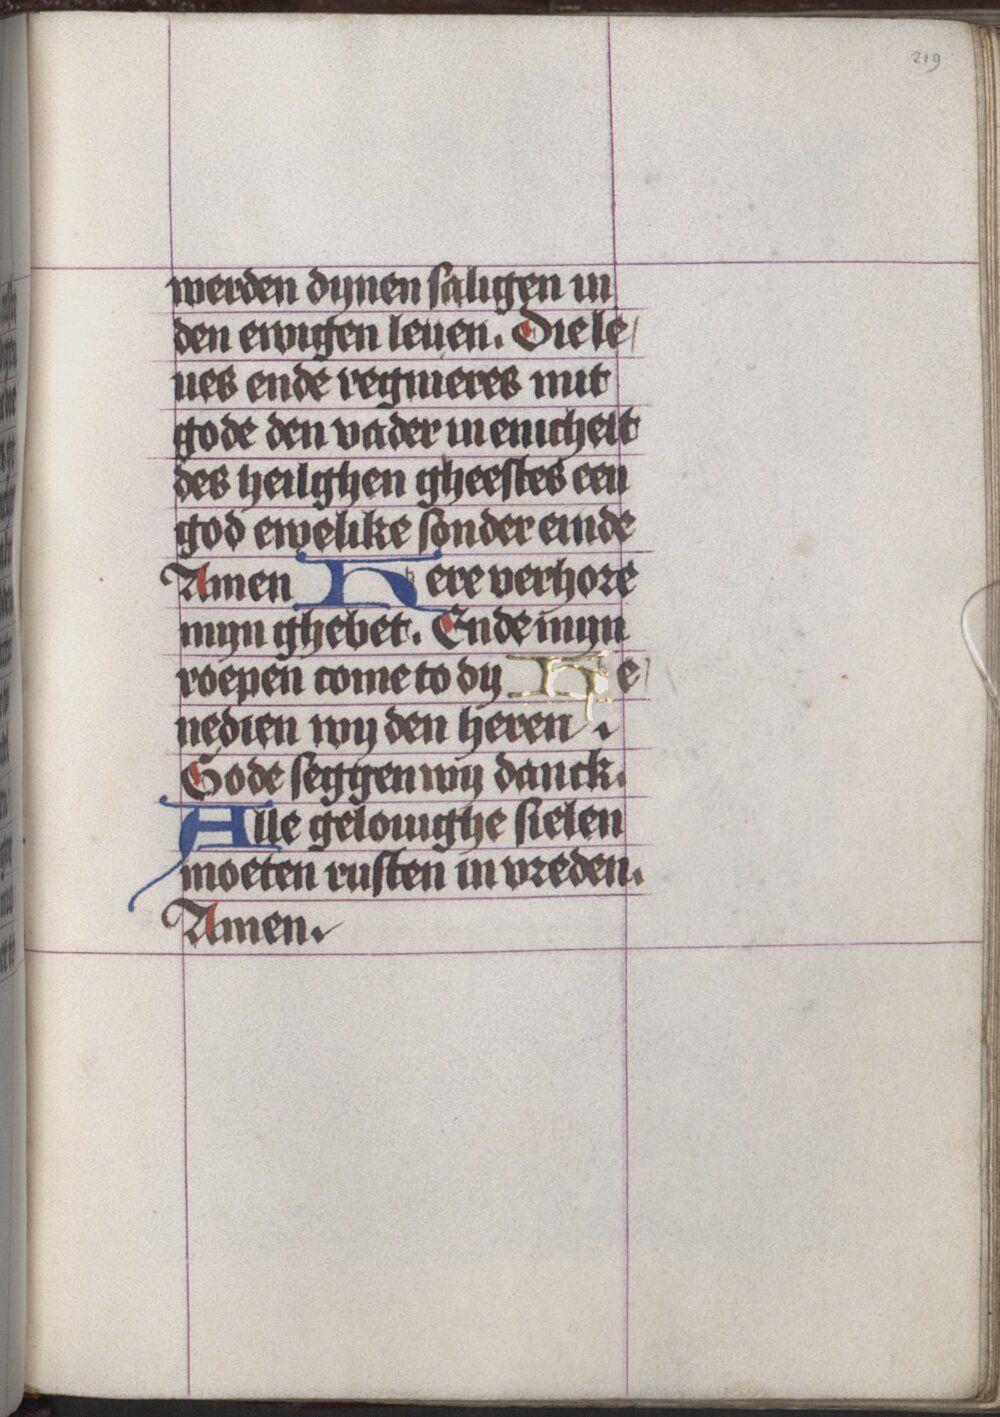 219
werden dynen saligen in
den ewigen leuen. Die le/
ues ende regnieres mit
gode den vader in enicheit
des heilghen gheestes een
god ewelike sonder einde
Amen Here verhore
myn ghebet. Ende myn
roepen come to dy Be/
nedien wy den heren.
Gode seggen wy danck.
Alle gelouighe sielen
moeten rusten in vreden.
Amen.